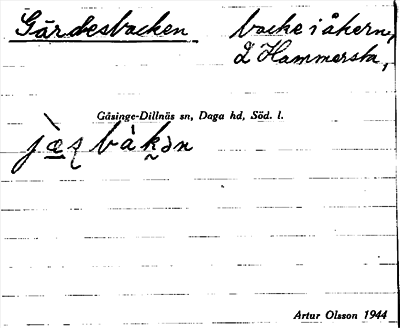 Gärdesbacken
backe i åkern,
L Hammersta,
Gåsinge-Dillnäs sn, Daga hd, Söd. l.
Artur Olsson 1944